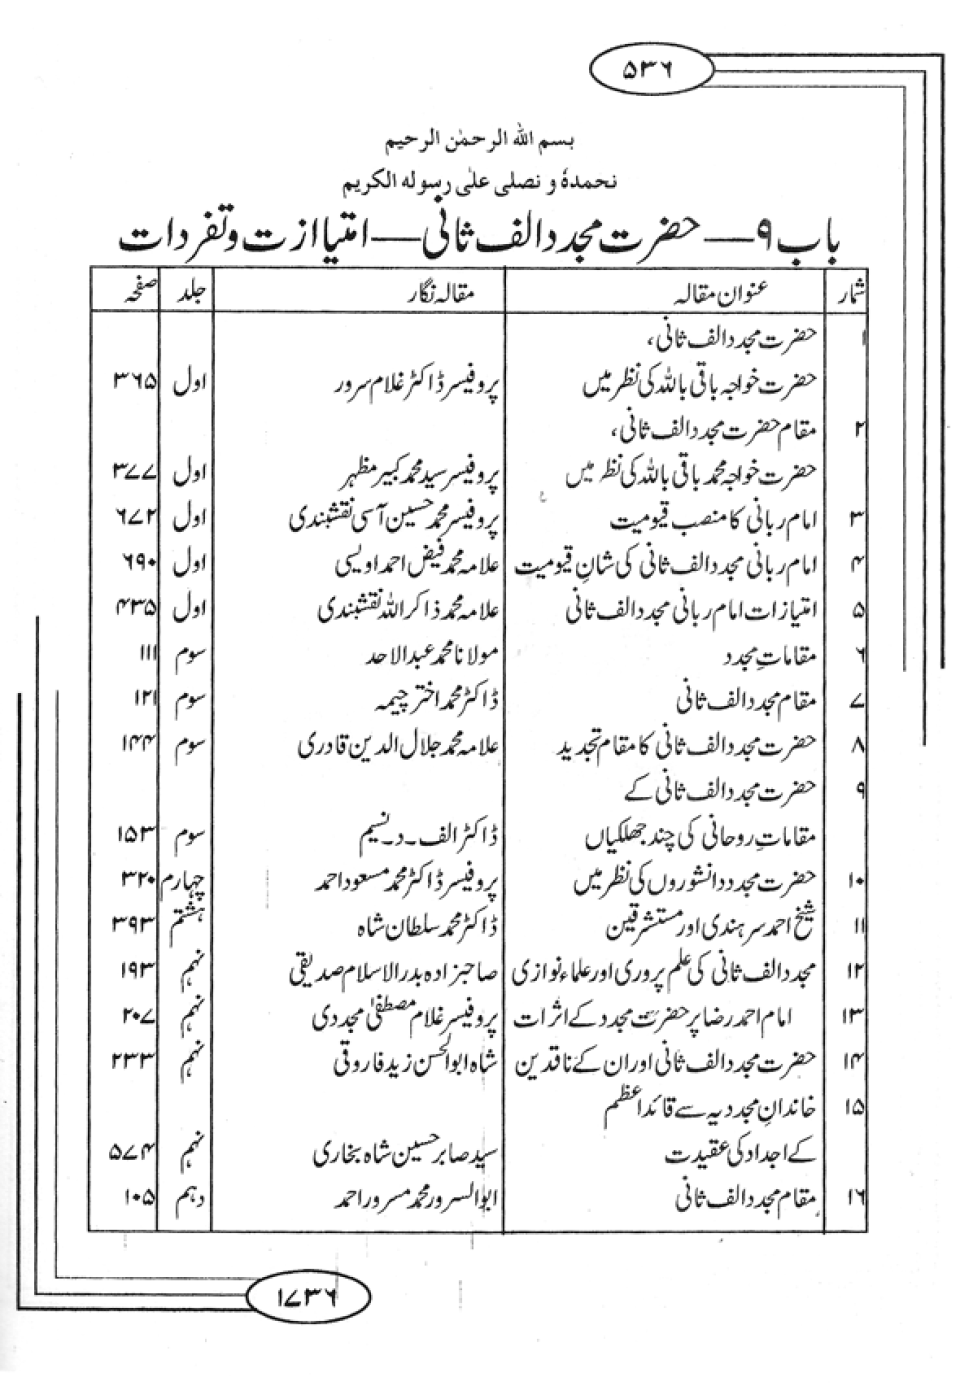 ۵۳۶
بسم الله الرحمٰن الرحیم
نحمدہٗ و نصلی علیٰ رسوله الکریم
باب ۹ — حضرت مجدد الف ثانی — امتیازت و تفردات
شمار عنوان مقالہ مقالہ نگار جلد صفحہ
۱ حضرت مجدد الف ثانی،
حضرت خواجہ باقی باللہ کی نظر میں پروفیسر ڈاکٹر غلام سرور اول ۳۶۵
۲ مقام حضرت مجدد الف ثانی،
حضرت خواجہ محمد باقی باللہ کی نظر میں پروفیسر سید محمد کبیر مظہر اول ۳۷۷
۳ امام ربانی کا منصب قیومیت پروفیسر محمد حسین آسی نقشبندی اول ۶۷۲
۴ امام ربانی مجدد الف ثانی کی شانِ قیومیت علامہ محمد فیض احمد اویسی اول ۶۹۰
۵ امتیازات امام ربانی مجدد الف ثانی علامہ محمد ذاکر اللہ نقشبندی اول ۴۳۵
۶ مقاماتِ مجدد مولانا محمد عبدالاحد سوم ۱۱۱
۷ مقام مجدد الف ثانی ڈاکٹر محمد اختر چیمہ سوم ۱۲۱
۸ حضرت مجدد الف ثانی کا مقام تجدید علامہ محمد جلال الدین قادری سوم ۱۴۴
۹ حضرت مجدد الف ثانی کے
مقاماتِ روحانی کی چند جھلکیاں ڈاکٹر الف۔د۔نسیم سوم ۱۵۳
۱۰ حضرت مجدد دانشوروں کی نظر میں پروفیسر ڈاکٹر محمد مسعود احمد چہارم ۳۲۰
۱۱ شیخ احمد سرہندی اور مستشرقین ڈاکٹر محمد سلطان شاہ ہشتم ۳۹۳
۱۲ مجدد الف ثانی کی علم پروری اور علماء نوازی صاحبزادہ بدرالاسلام صدیقی نہم ۱۹۳
۱۳ امام احمد رضا پر حضرت مجدد کے اثرات پروفیسر غلام مصطفیٰ مجددی نہم ۲۰۷
۱۴ حضرت مجدد الف ثانی اور ان کے ناقدین شاہ ابوالحسن زید فاروقی نہم ۲۳۳
۱۵ خاندانِ مجددیہ سے قائد اعظم
کے اجداد کی عقیدت سید صابر حسین شاہ بخاری نہم ۵۷۴
۱۶ مقام مجدد الف ثانی ابوالسرور محمد مسرور احمد دہم ۱۰۵
۱۷۳۶